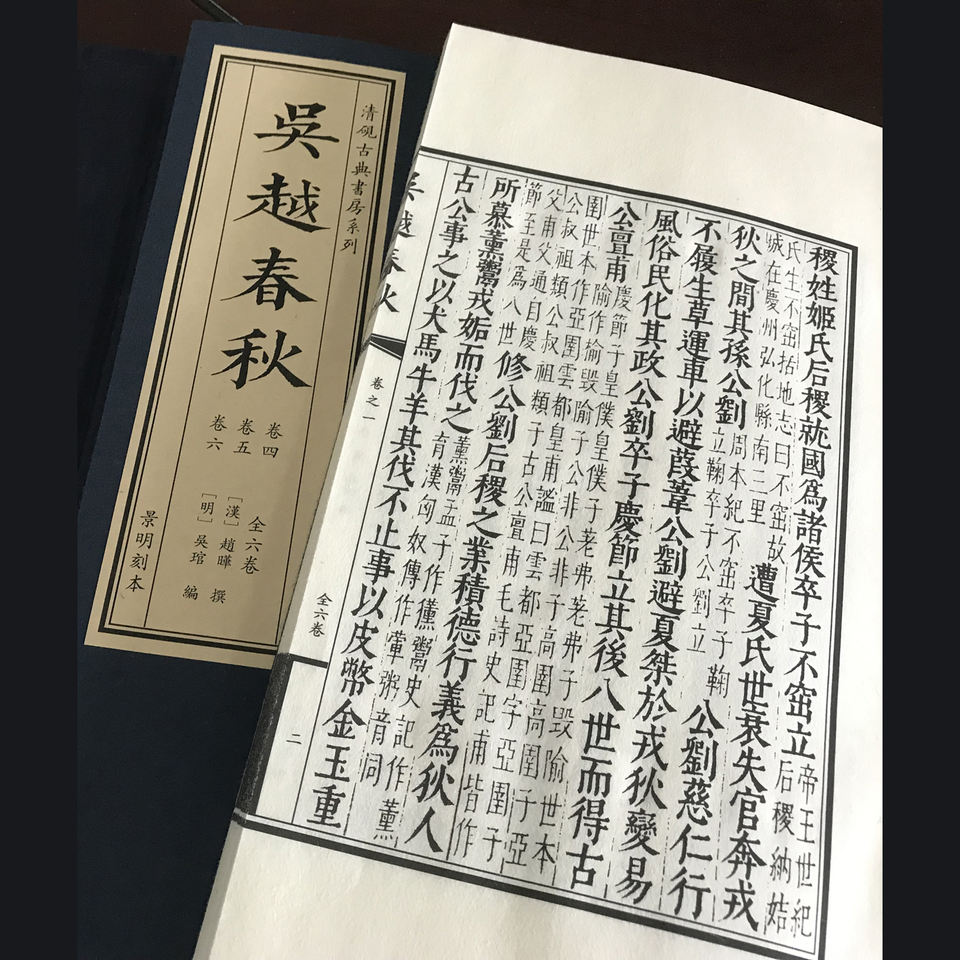 清硯古典書房系列
吳越春秋
卷四
卷五
卷六
全六卷
[漢]趙曄 撰
[明]吳琯 編
景明刻本
稷姓姬氏后稷就國為諸侯卒子不窋立帝王世紀
后稷納姞
氏生不窋括地志曰不窋故
城在慶州弘化縣南三里
遭夏氏世衰失官奔戎
狄之間其孫公劉周本紀不窋卒子鞠
立鞠卒子公劉立
公劉慈仁行
不履生草運車以避葭葦公劉避夏桀於戎狄變易
風俗民化其政公劉卒子慶節立其後八世而得古
公亶甫慶節子皇僕皇僕子差弗差弗子毀隃世本
隃作榆毀隃子公非公非子高圉高圉子亞
圉世本作亞圉雲都皇甫謐曰雲都亞圉字亞圉子
公叔祖類公叔祖類子古公亶甫毛詩史記甫皆作
父甫父通自慶
節至是為八世
修公劉后稷之業積德行義為狄人
所慕薰鬻戎姤而伐之薰鬻孟子作獯鬻史記作薰
育漢匈奴傳作葷粥音同
古公事之以犬馬牛羊其伐不止事以皮幣金玉重
吳越春秋
卷之一
全六卷
二